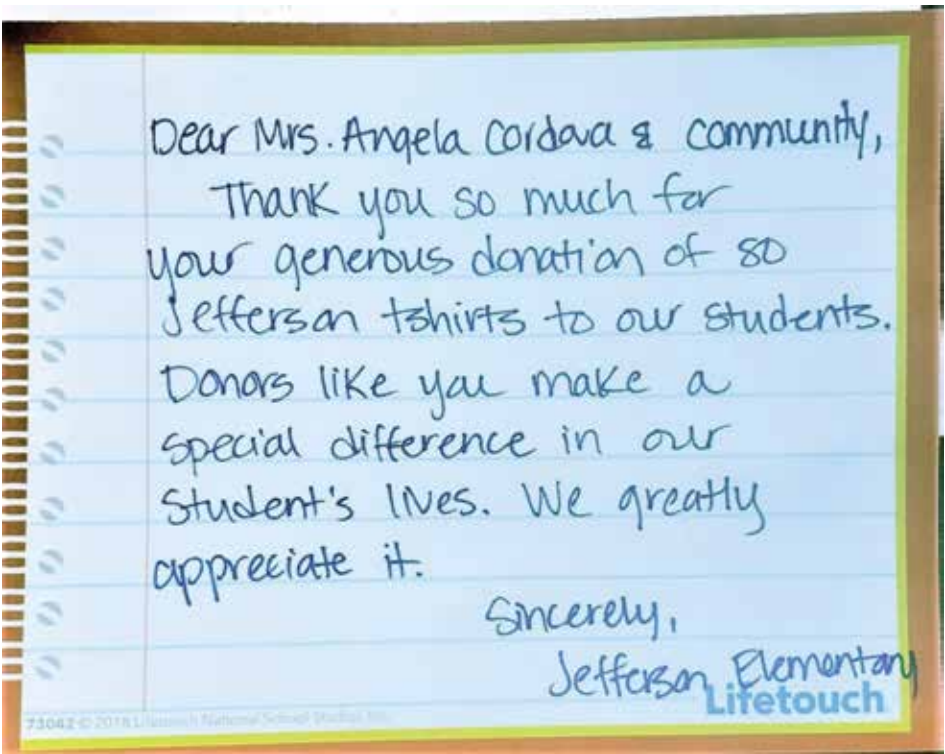 Dear Mrs. Angela Cordova & community,
Thank you so much for
your generous donation of 80
Jefferson tshirts to our students.
Donors like you make a
special difference in our
student's lives. We greatly
appreciate it.
Sincerely,
Jefferson Elementary
Lifetouch
73042 © 2018 Lifetouch National School Studios Inc.